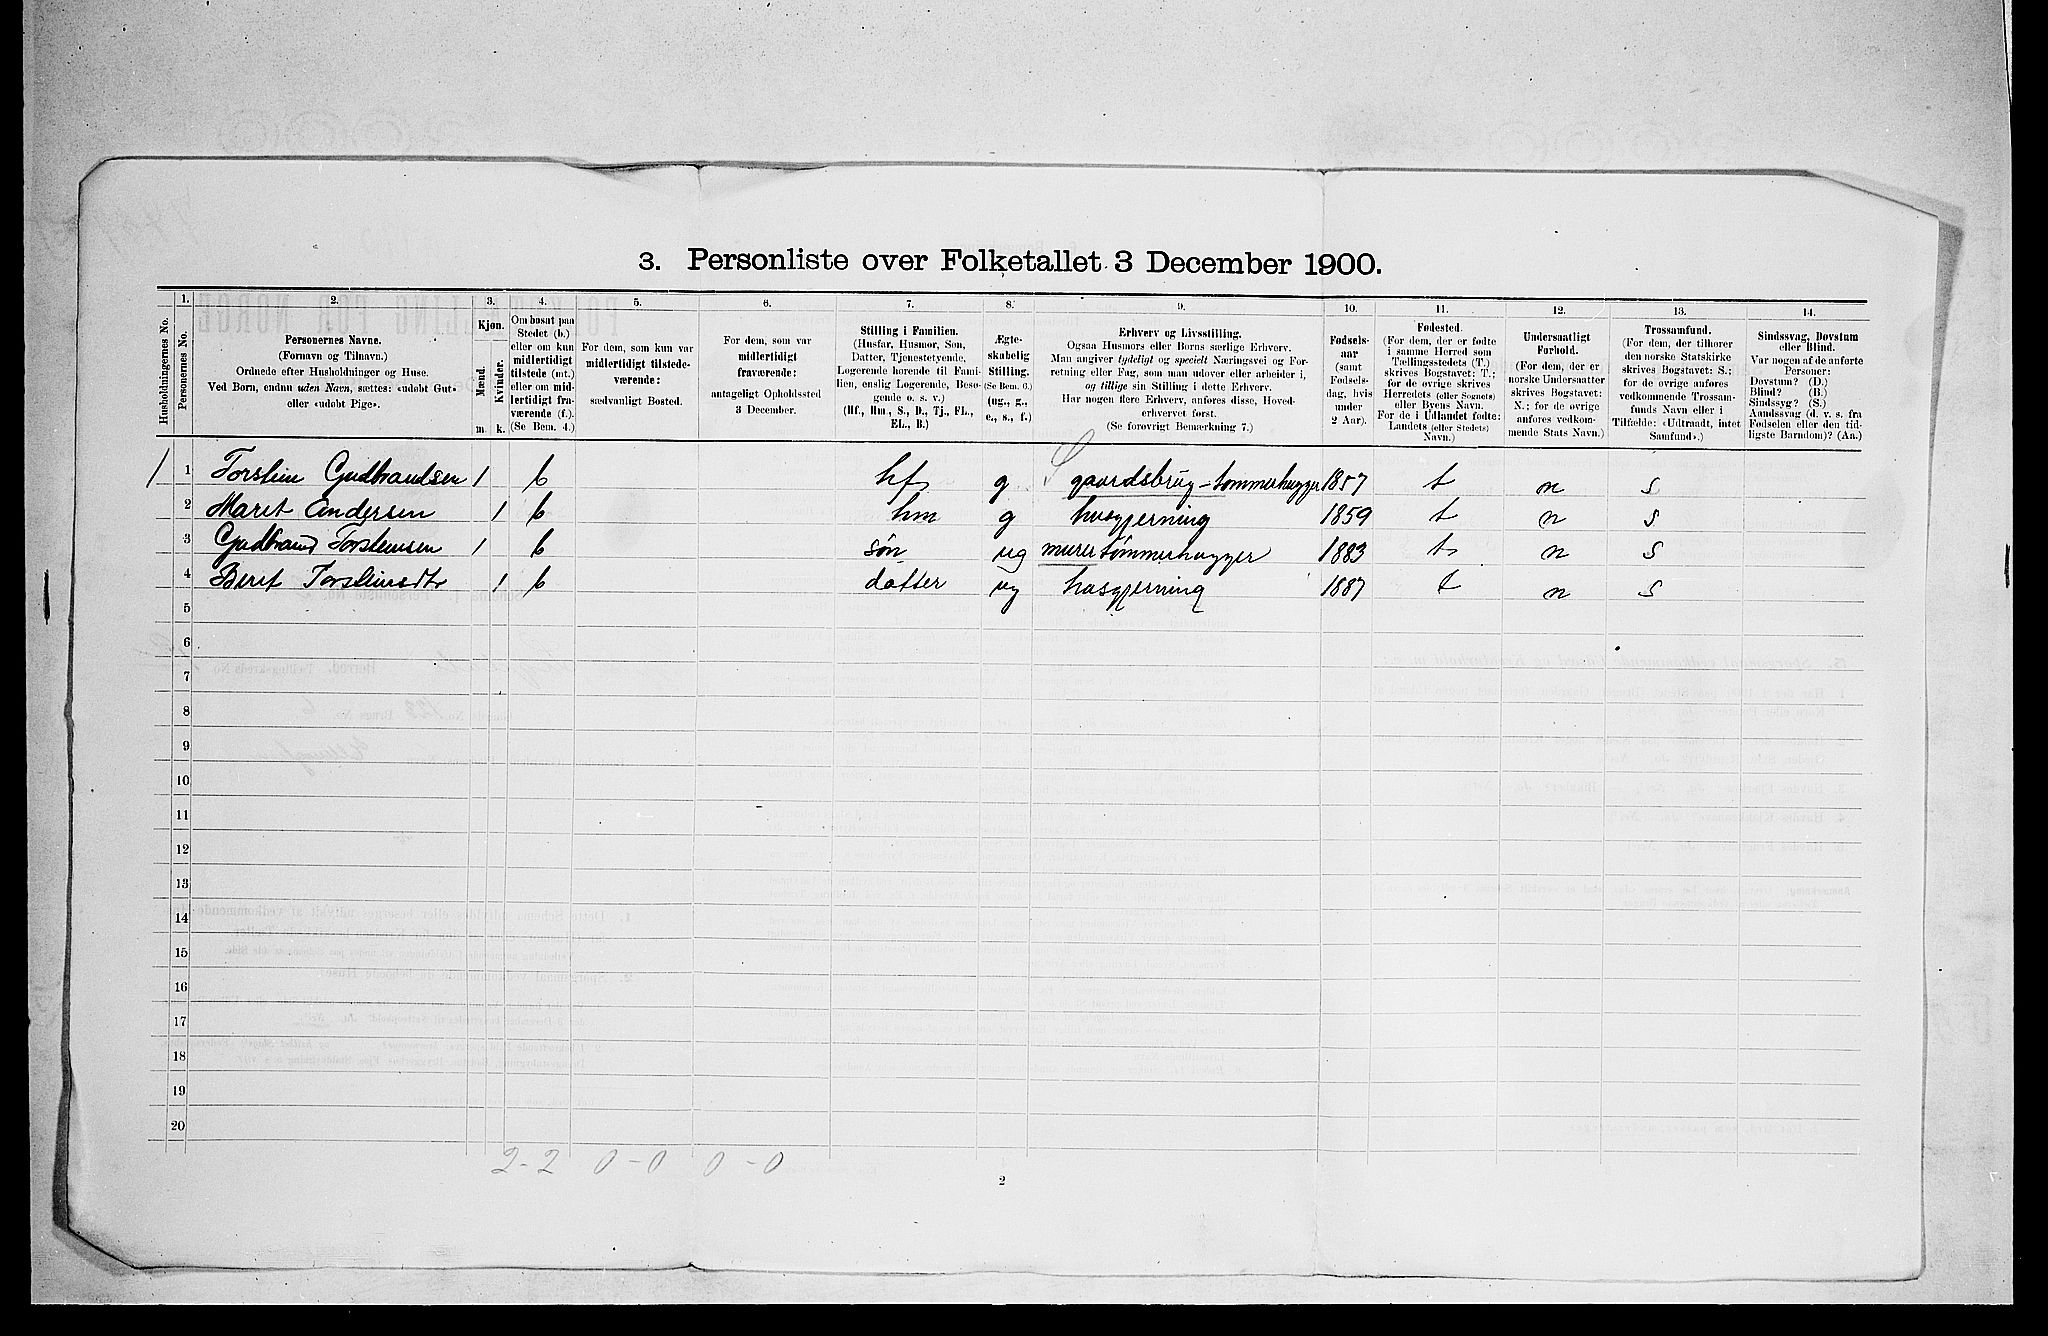 3. Personliste over Folketallet 3 December 1900.
Husholdningernes No.
1.
Personernes No.
2.
Personernes Navne.
(Fornavn og Tilnavn.)
Ordnede efter Husholdninger og Huse.
Ved Børn, endnu uden Navn, sættes: «udøbt Gut»
eller «udøbt Pige».
3.
Kjøn.
Mænd.
Kvinder.
m.
k.
4.
Om bosat paa
Stedet (b.)
eller om kun
midlertidigt
tilstede (mt.)
eller om mid-
lertidigt fra-
værende (f.)
(Se Bem. 4.)
5.
For dem, som kun var
midlertidigt tilstede-
værende:
sædvanligt Bosted.
6.
For dem, som var
midlertidigt
fraværende:
antageligt Opholdssted
3 December.
7.
Stilling i Familien.
(Husfar, Husmor, Søn,
Datter, Tjenestetyende,
Logerende hørende til Fami-
lien, enslig Logerende, Besø-
gende o. s. v.)
(Hf., Hm., S., D., Tj., FL.,
EL., B.)
8.
Ægte-
skabelig
Stilling.
(Se Bem. 6.)
(ug., g.,
e., s., f.)
9.
Erhverv og Livsstilling.
Ogsaa Husmors eller Børns særlige Erhverv.
Man angiver tydeligt og specielt Næringsvei og For-
retning eller Fag, som man udøver eller arbeider i,
og tillige sin Stilling i dette Erhverv.
Har nogen flere Erhverv, anføres disse, Hoved-
erhvervet først.
(Se forøvrigt Bemærkning 7.)
10.
Fødsels-
aar
(samt
Fødsels-
dag, hvis
under
2 Aar).
11.
Fødested.
(For dem, der er fødte
i samme Herred som
Tællingsstedets (T.)
skrives Bogstavet: T.;
for de øvrige skrives
Herredets (eller Sognets)
eller Byens Navn.
For de i Udlandet fødte:
Landets (eller Stedets)
Navn.)
12.
Undersaatligt
Forhold.
(For dem, der er
norske Undersaatter
skrives Bogstavet:
N.; for de øvrige
anføres vedkom-
mende Stats Navn.)
13.
Trossamfund.
(For dem, der tilhører
den norske Statskirke
skrives Bogstavet: S.;
for de øvrige anføres
vedkommende Trossam-
funds Navn eller i
Tilfælde: «Udtraadt, intet
Samfund».)
14.
Sindssvag, Døvstum
eller Blind.
Var nogen af de anførte
Personer:
Døvstum? (D.)
Blind? (B.)
Sindssyg? (S.)
Aandssvag (d. v. s. fra
Fødselen eller den tid-
ligste Barndom)? (Aa.)
1 1 Torstein Gudbrandsen 1 b hf g gaardsbrug-tømmerhugger 1857 t n s
2 Marit Andersen 1 b hm g husgjerning 1859 t n s
3 Gudbrand Torsteinsen 1 b søn ug murer tømmerhugger 1883 t n s
4 Berit Torsteinsdtr 1 b datter ug husgjerning 1887 t n s
5
6
7
8
9
10
11
12
13
14
15
16
17
18
19
20
2-2 0-0 0-0
2